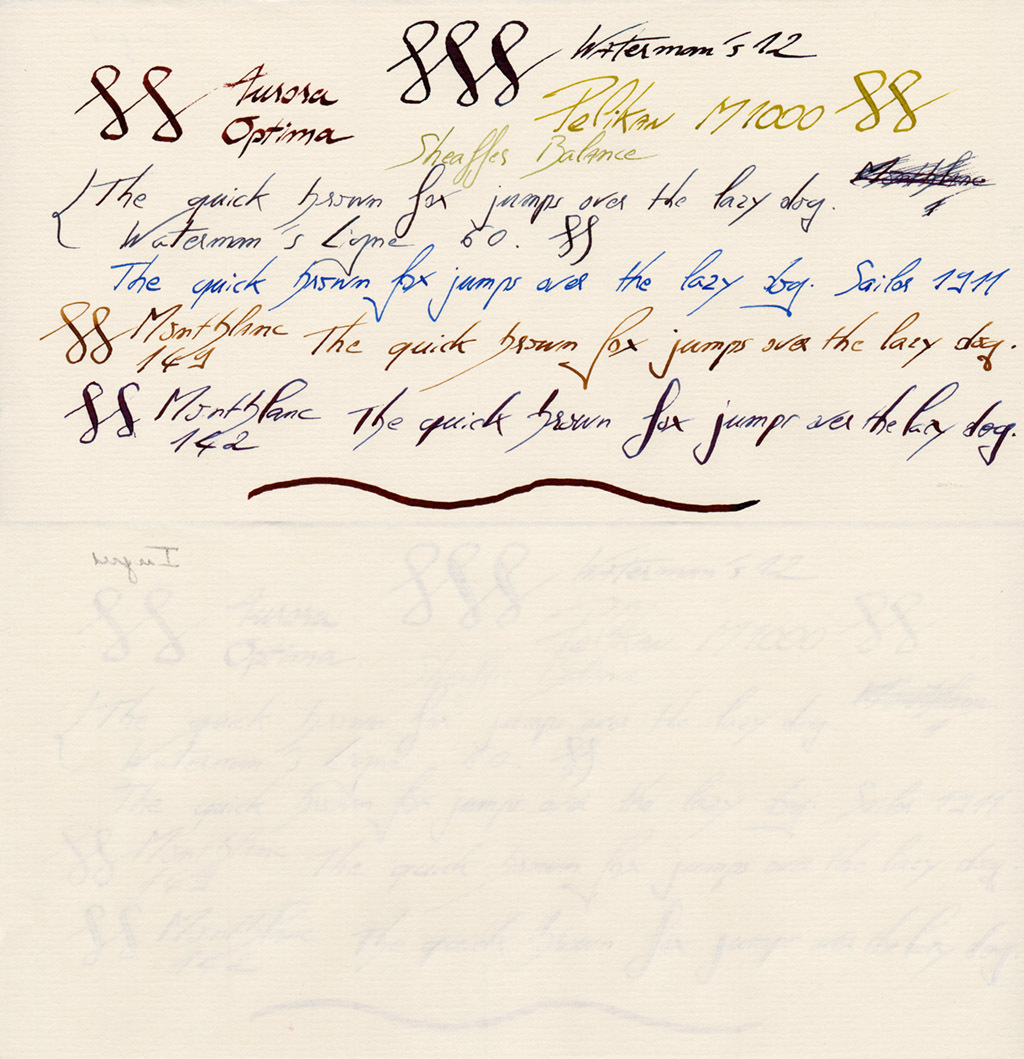 Waterman's 12
Aurora
Optima
Pelikan M1000
Sheaffer Balance
The quick brown fox jumps over the lazy dog.
Waterman's Ligne 60.
The quick brown fox jumps over the lazy dog. Sailor 1911
Montblanc
149
The quick brown fox jumps over the lazy dog.
Montblanc
142
The quick brown fox jumps over the lazy dog.
Ingres
Waterman's 12
Aurora
Optima
Pelikan M1000
The quick brown fox jumps over the lazy dog
Waterman's Ligne 60
The quick brown fox jumps over the lazy dog. Sailor 1911
Montblanc
149
The quick brown fox jumps over the lazy dog
Montblanc
142
The quick brown fox jumps over the lazy dog.